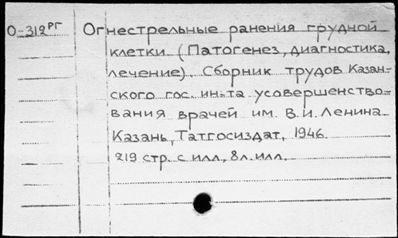 О-312РГ
Огнестрельные ранения грудной
клетки. (Патогенез, диагностика,
лечение). Сборник трудов Казан-
ского гос. ин-та усовершенство-
вания врачей им. В.И. Ленина.
Казань, Татгосиздат, 1946.
219 стр. с илл., 8 л. илл.